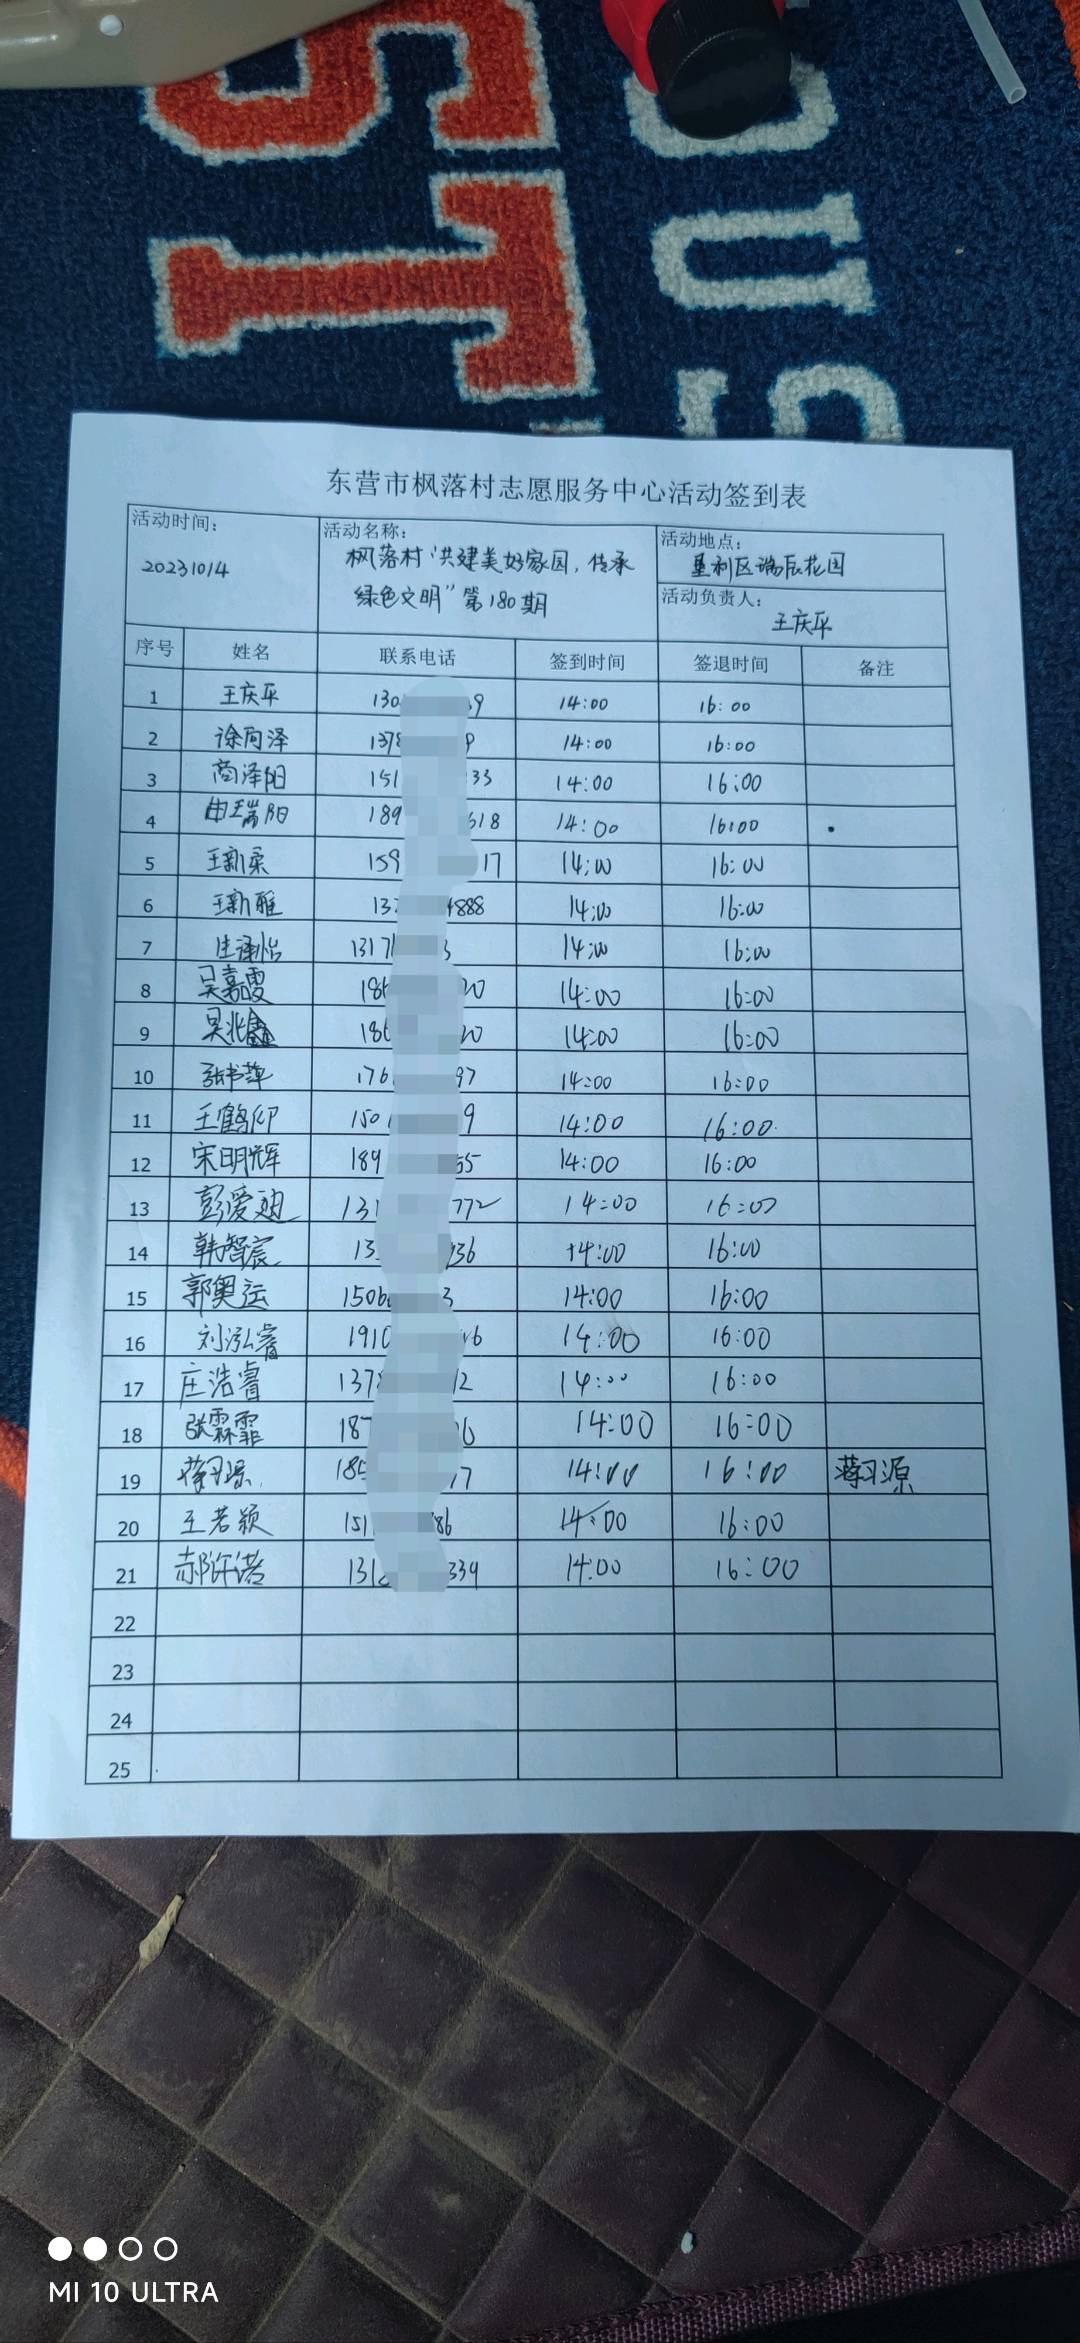 ST
OUS
东营市枫落村志愿服务中心活动签到表
活动时间: 20231014
活动名称: 枫落村“共建美好家园,传承
绿色文明”第180期
活动地点: 垦利区瑞辰花园
活动负责人: 王庆平
序号 姓名 联系电话 签到时间 签退时间 备注
1 王庆平 130 9 14:00 16:00
2 徐向泽 137 9 14:00 16:00
3 商泽阳 151 33 14:00 16:00
4 由瑞阳 189 618 14:00 16:00
5 王新柔 159 17 14:00 16:00
6 王新雅 13 888 14:00 16:00
7 1317 3 14:00 16:00
8 吴嘉霞 186 20 14:00 16:00
9 吴兆鑫 186 20 14:00 16:00
10 张书萍 176 97 14:00 16:00
11 王鹤仰 150 9 14:00 16:00
12 宋明辉 189 55 14:00 16:00
13 彭爱迪 131 772 14:00 16:00
14 韩智宸 13 36 14:00 16:00
15 郭奥运 150 3 14:00 16:00
16 刘泓睿 1910 6 14:00 16:00
17 庄浩睿 137 12 14:00 16:00
18 张霖霏 187 6 14:00 16:00
19 蒋习源 185 17 14:00 16:00 蒋习源
20 王若颖 151 86 14:00 16:00
21 郝许诺 131 339 14:00 16:00
22
23
24
25
MI 10 ULTRA